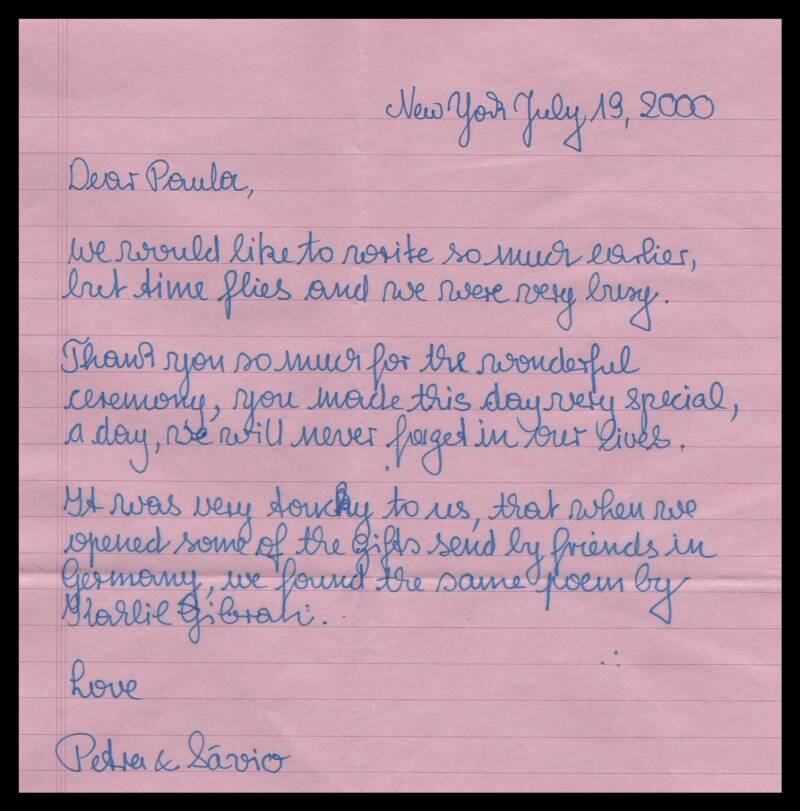 New York July, 19, 2000
Dear Paula,
we would like to write so much earlier,
but time flies and we were very busy.
Thank you so much for the wonderful
ceremony, you made this day very special,
a day, we will never forget in our lives.
It was very touchy to us, that when we
opened some of the gifts send by friends in
Germany, we found the same poem by
Kahlil Gibran.
Love
Petra & Sávio